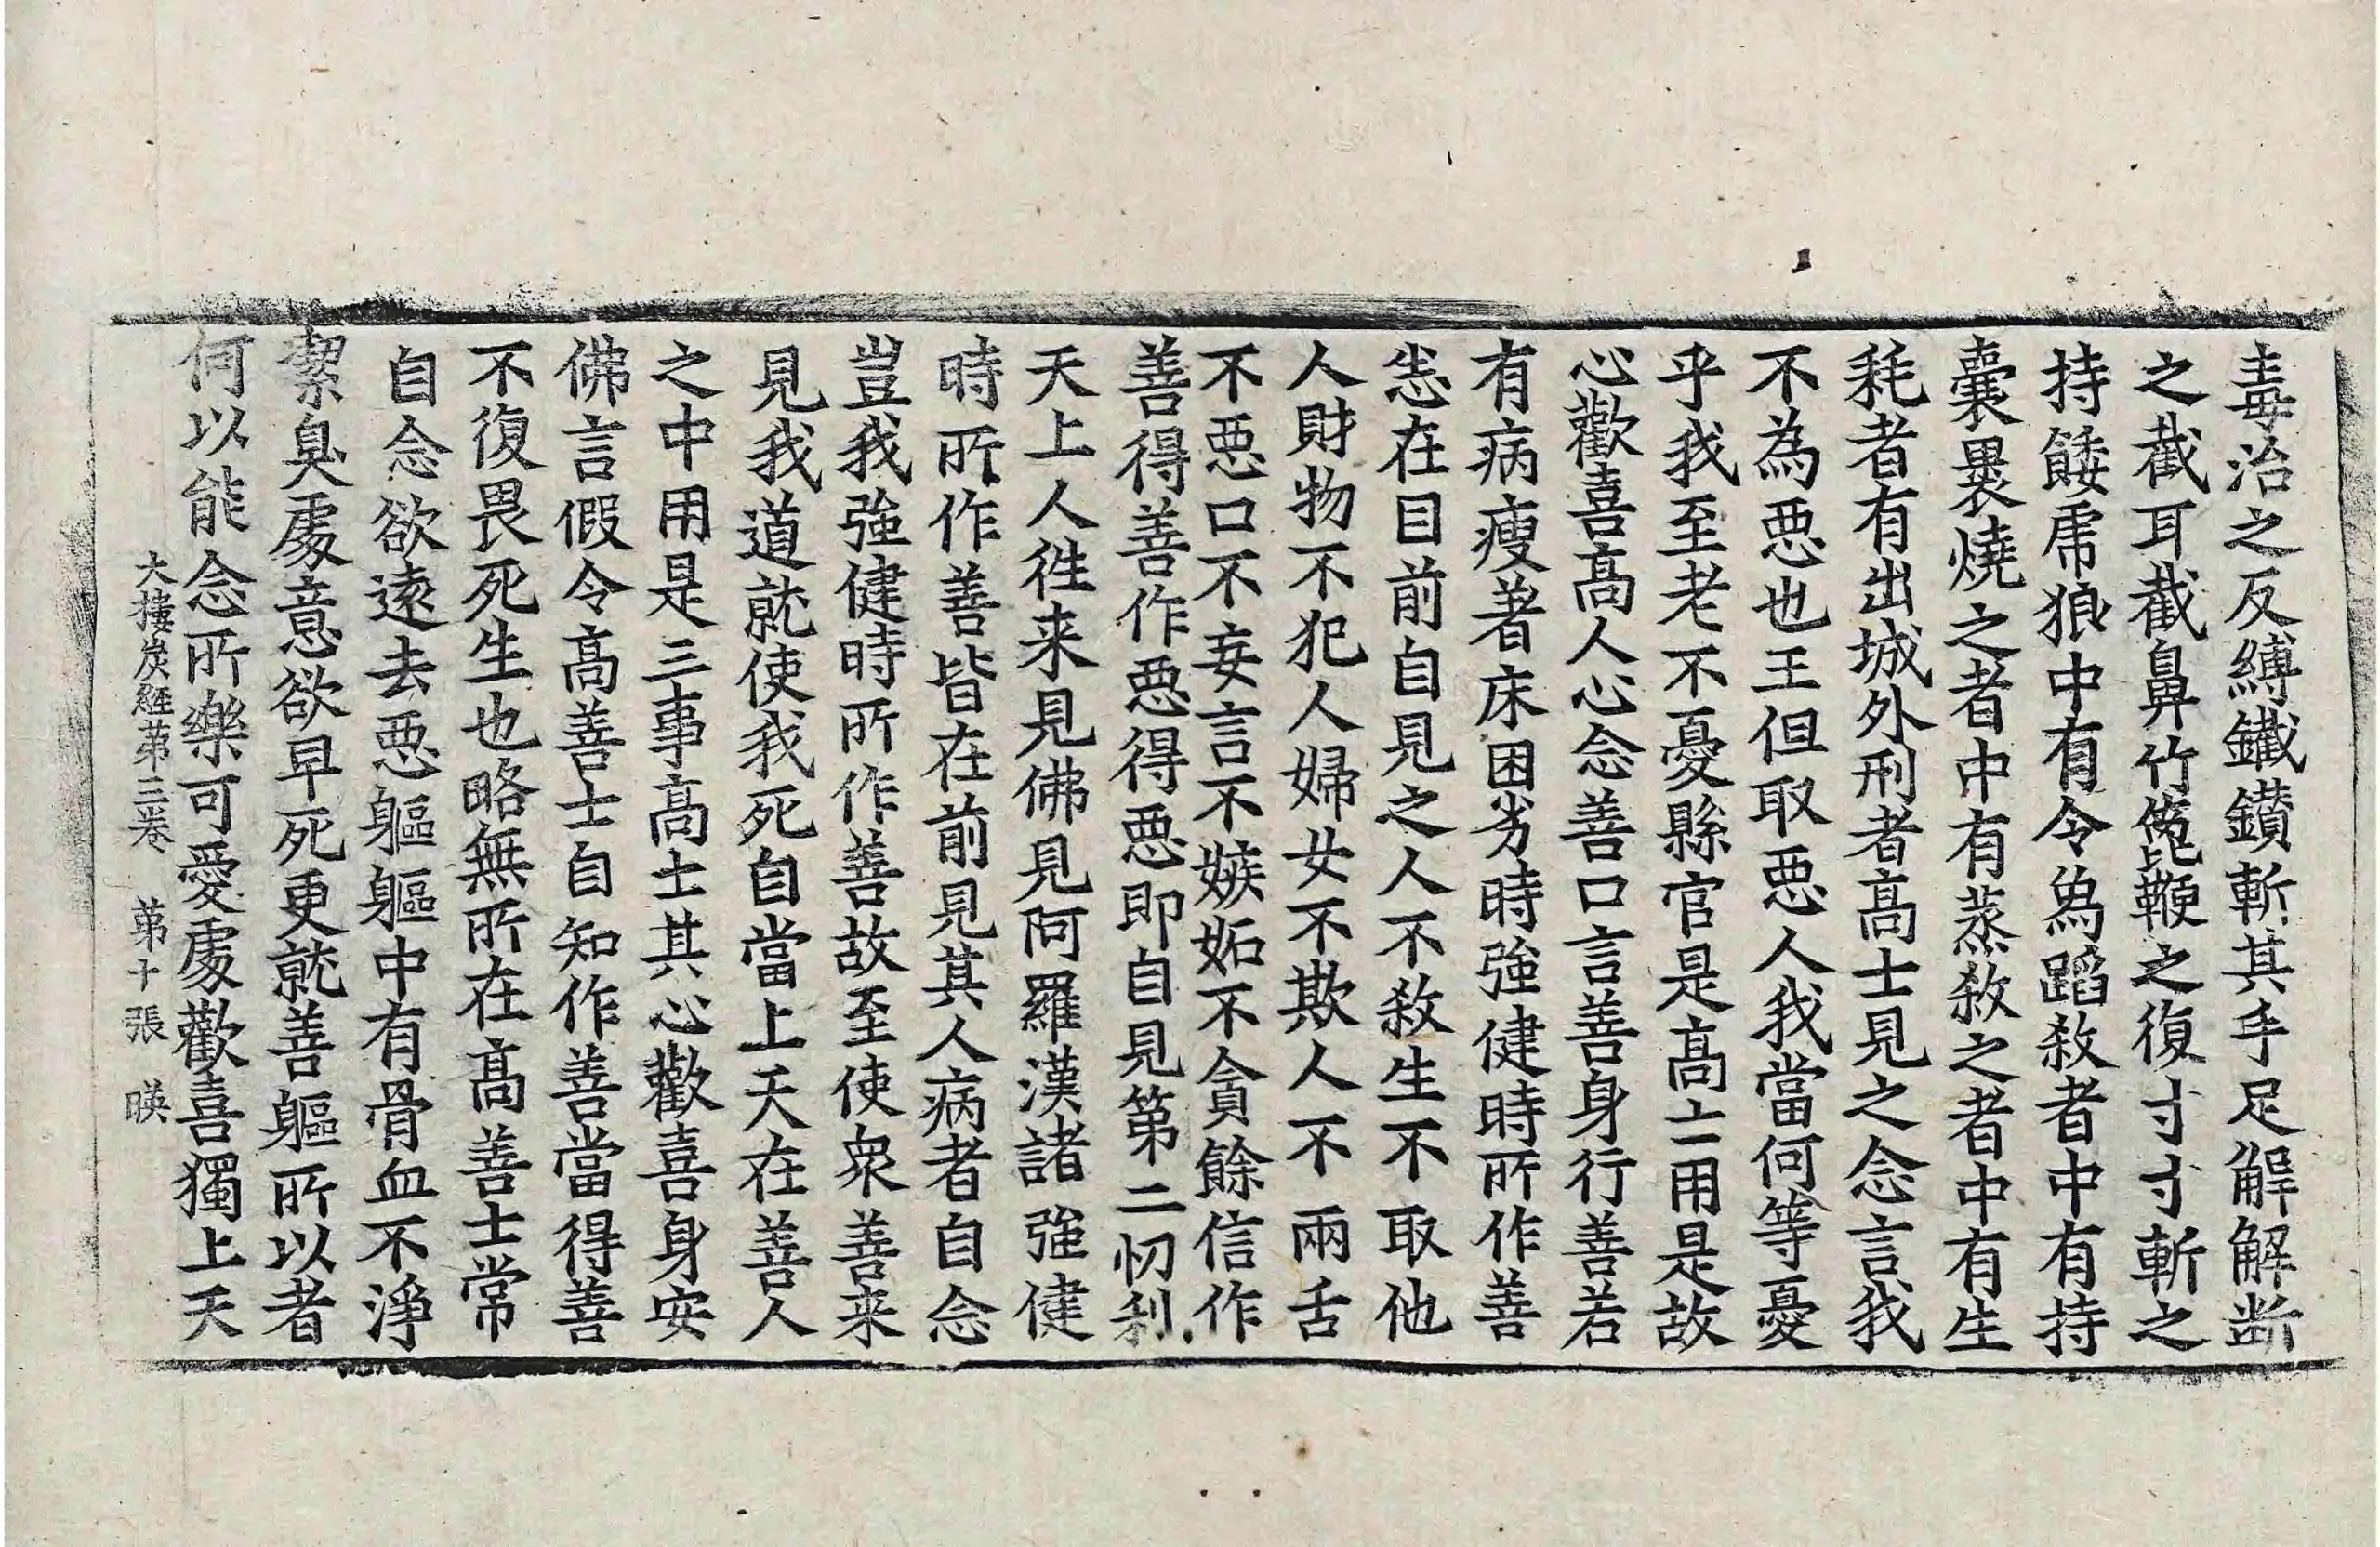 毒治之反縛鐵鑕斬其手足解解断
之截耳截鼻竹箆鞭之復寸寸斬之
持餧虎狼中有令爲蹈敎者中有持
囊褁燒之者中有蒸敎之者中有生
耗者有出城外刑者高士見之念言我
不為惡也王但取惡人我當何等憂
乎我至老不憂縣官是高士用是故
心歡喜高人心念善口言善身行善若
有病瘦著床困劣時強健時所作善
恙在目前自見之人不敎生不取他
人財物不犯人婦女不欺人不兩舌
不惡口不妄言不嫉妬不貪餘信作
善得善作惡得惡即自見第二忉利
天上人徃来見佛見阿羅漢諸強健
時所作善皆在前見其人病者自念
豈我強健時所作善故至使衆善来
見我道就使我死自當上天在善人
之中用是三事高士其心歡喜身安
佛言假令高善士自知作善當得善
不復畏死生也略無所在高善士常
自念欲逺去惡軀軀中有骨血不淨
絜臭處意欲早死更就善軀所以者
何以能念所樂可愛處歡喜獨上天
大樓炭經苐三卷　苐十張　暎